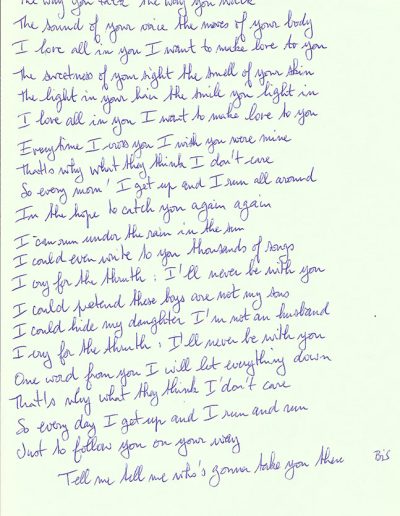 The way you talk the way you move
The sound of your voice the moves of your body
I love all in you I want to make love to you
The sweetness of your sight the smell of your skin
The light in your hair the smile you light in
I love all in you I want to make love to you
Everytime I cross you I wish you were mine
That's why what they think I don't care
So every morn' I get up and I run all around
In the hope to catch you again again
I can run under the rain in the sun
I could even write to you thousands of songs
I cry for the thruth : I'll never be with you
I could pretend these boys are not my sons
I could hide my daughter I'm not an husband
I cry for the thruth : I'll never be with you
One word from you I will let everything down
That's why what they think I don't care
So every day I get up and I run and run
Just to follow you on your way
Tell me tell me who's gonna take you there Bis